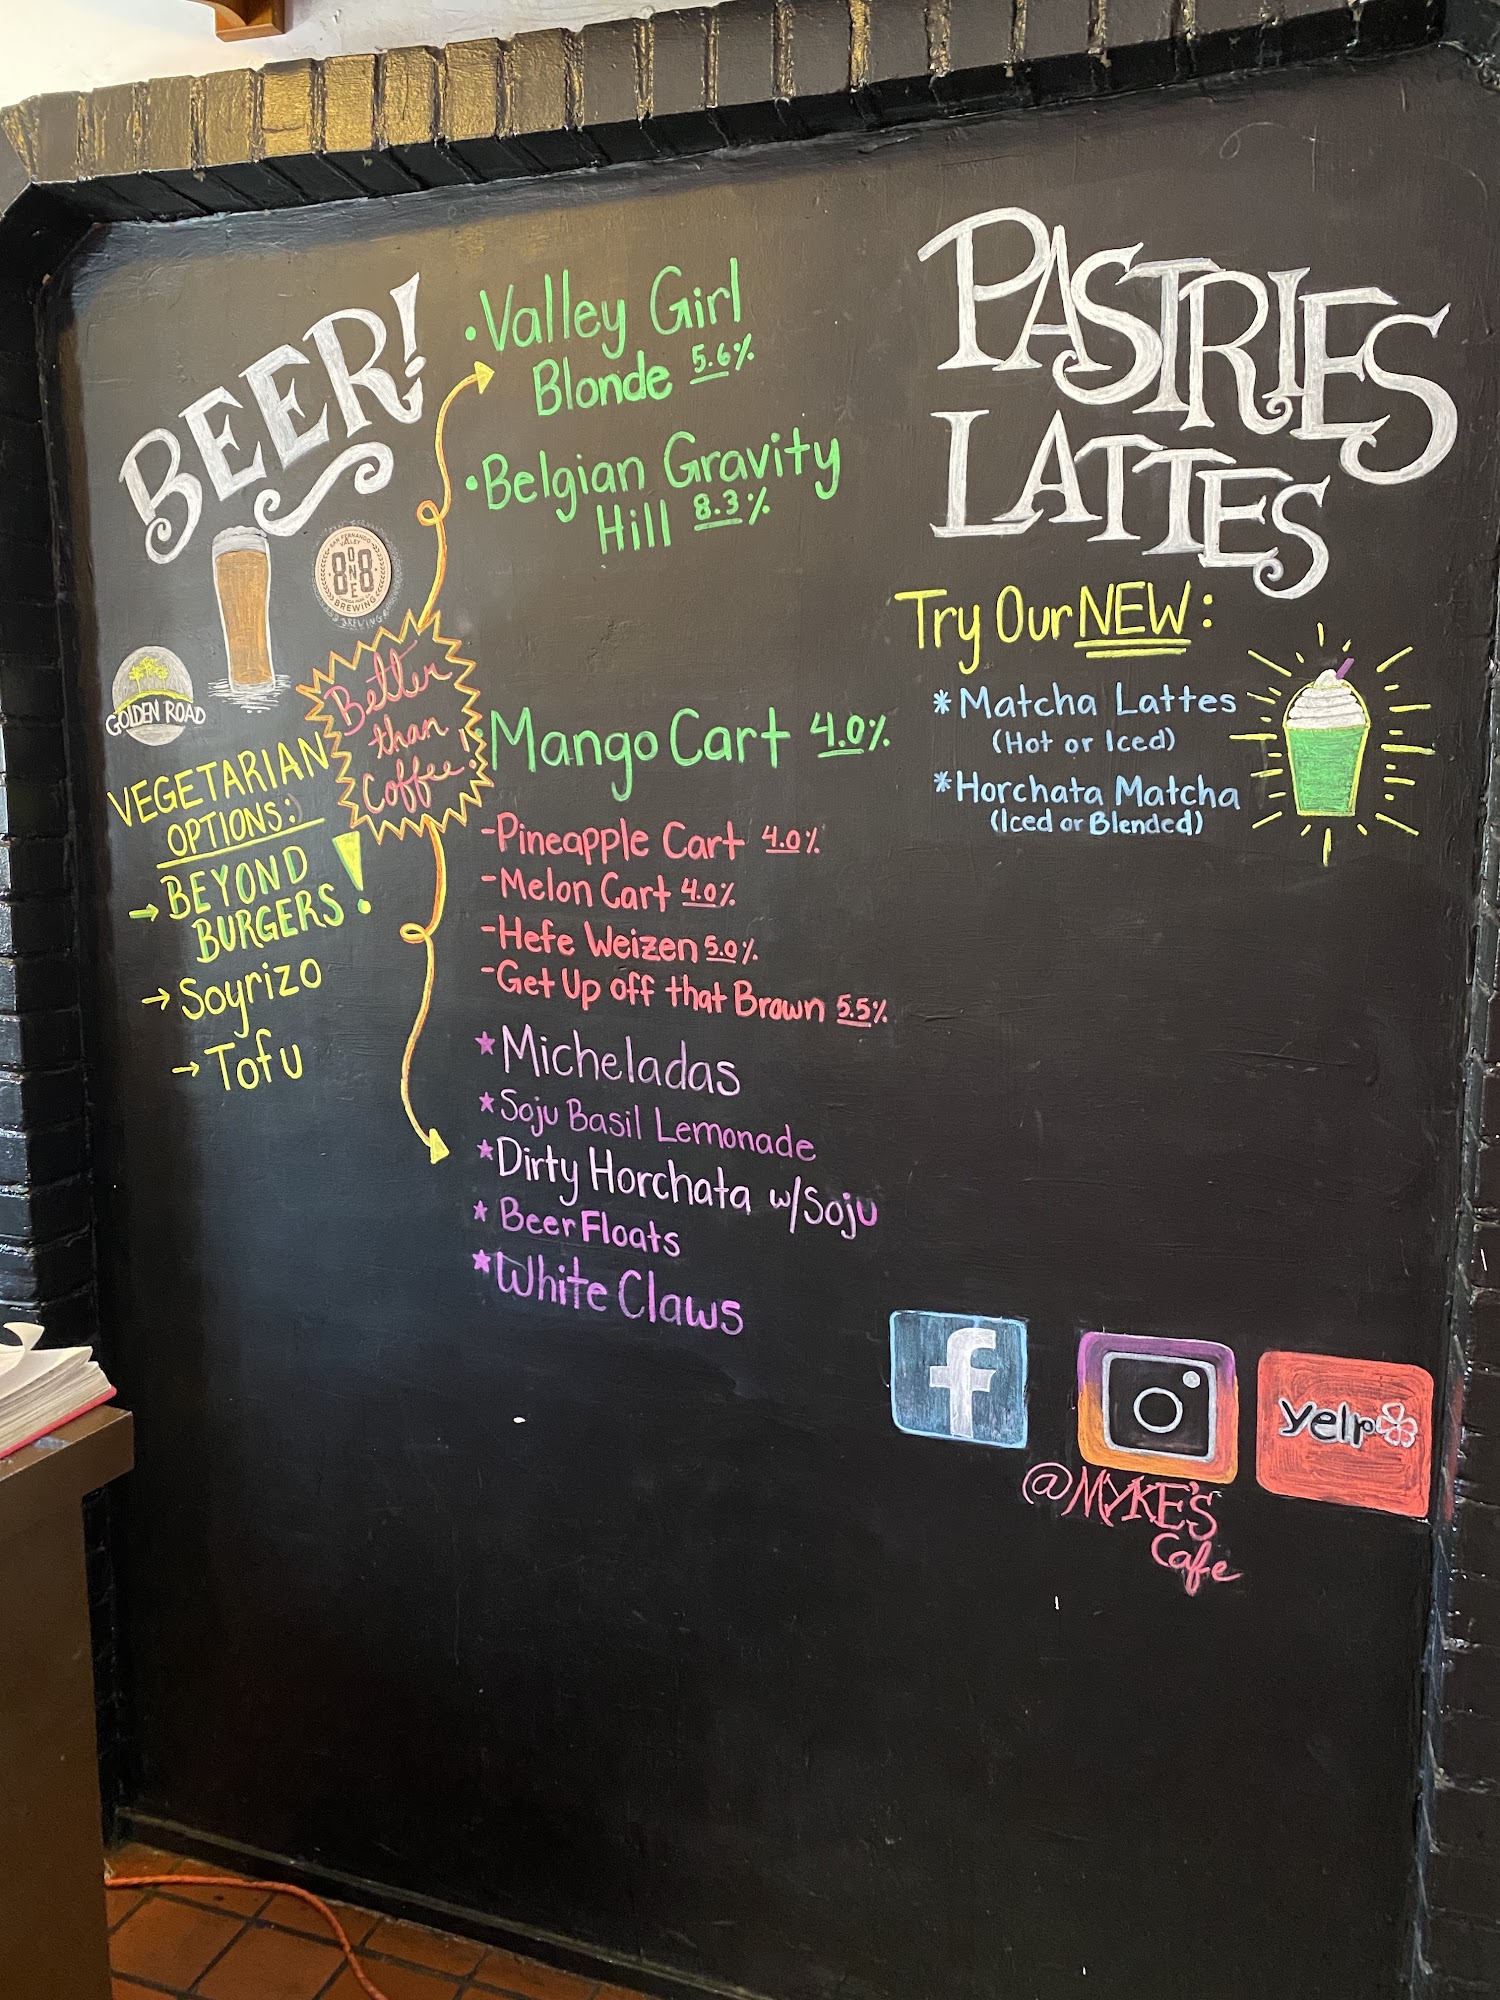 BEER!
SAN FERNANDO
VALLEY
8 ONE 8
BREWING
BREWING
GOLDEN ROAD
Better
than
Coffee!
VEGETARIAN
OPTIONS:
→ BEYOND
BURGERS!
→ Soyrizo
→ Tofu
• Valley Girl
Blonde 5.6%
• Belgian Gravity
Hill 8.3%
• Mango Cart 4.0%
- Pineapple Cart 4.0%
- Melon Cart 4.0%
- Hefe Weizen 5.0%
- Get Up off that Brown 5.5%
* Micheladas
* Soju Basil Lemonade
* Dirty Horchata w/Soju
* Beer Floats
* White Claws
PASTRIES
LATTES
Try Our NEW:
* Matcha Lattes
(Hot or Iced)
* Horchata Matcha
(Iced or Blended)
f
yelp
@MYKE'S
Cafe